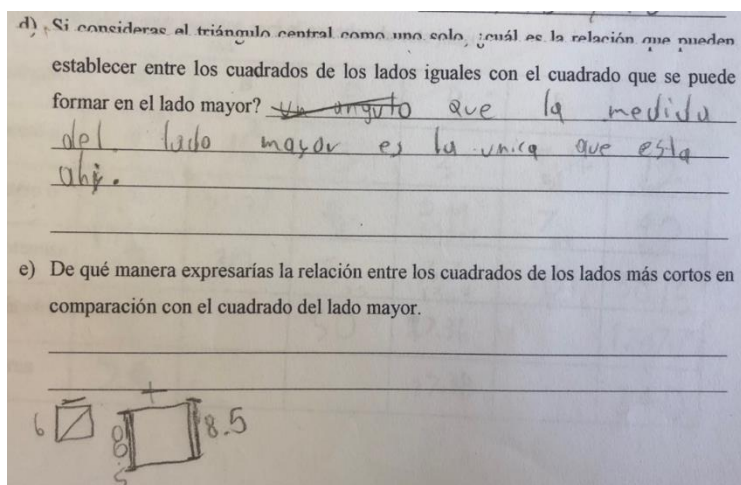 d) Si consideras el triángulo central como uno solo, ¿cuál es la relación que pueden
establecer entre los cuadrados de los lados iguales con el cuadrado que se puede
formar en el lado mayor? un angulo que la medida
del lado mayor es la unica que esta
ahi.
e) De qué manera expresarías la relación entre los cuadrados de los lados más cortos en
comparación con el cuadrado del lado mayor.
6 8.5